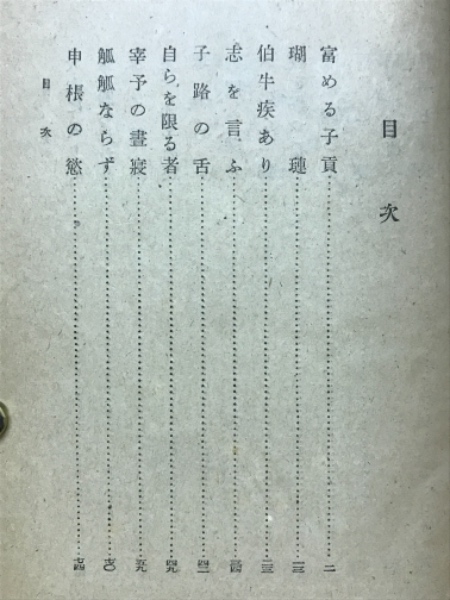 目次
富める子貢……二
瑚璉……一三
伯牛疾あり……二三
志を言ふ……三四
子路の舌……四二
自らを限る者……四九
宰予の晝寢……五九
觚觚ならず……七〇
申棖の慾……七四
目次